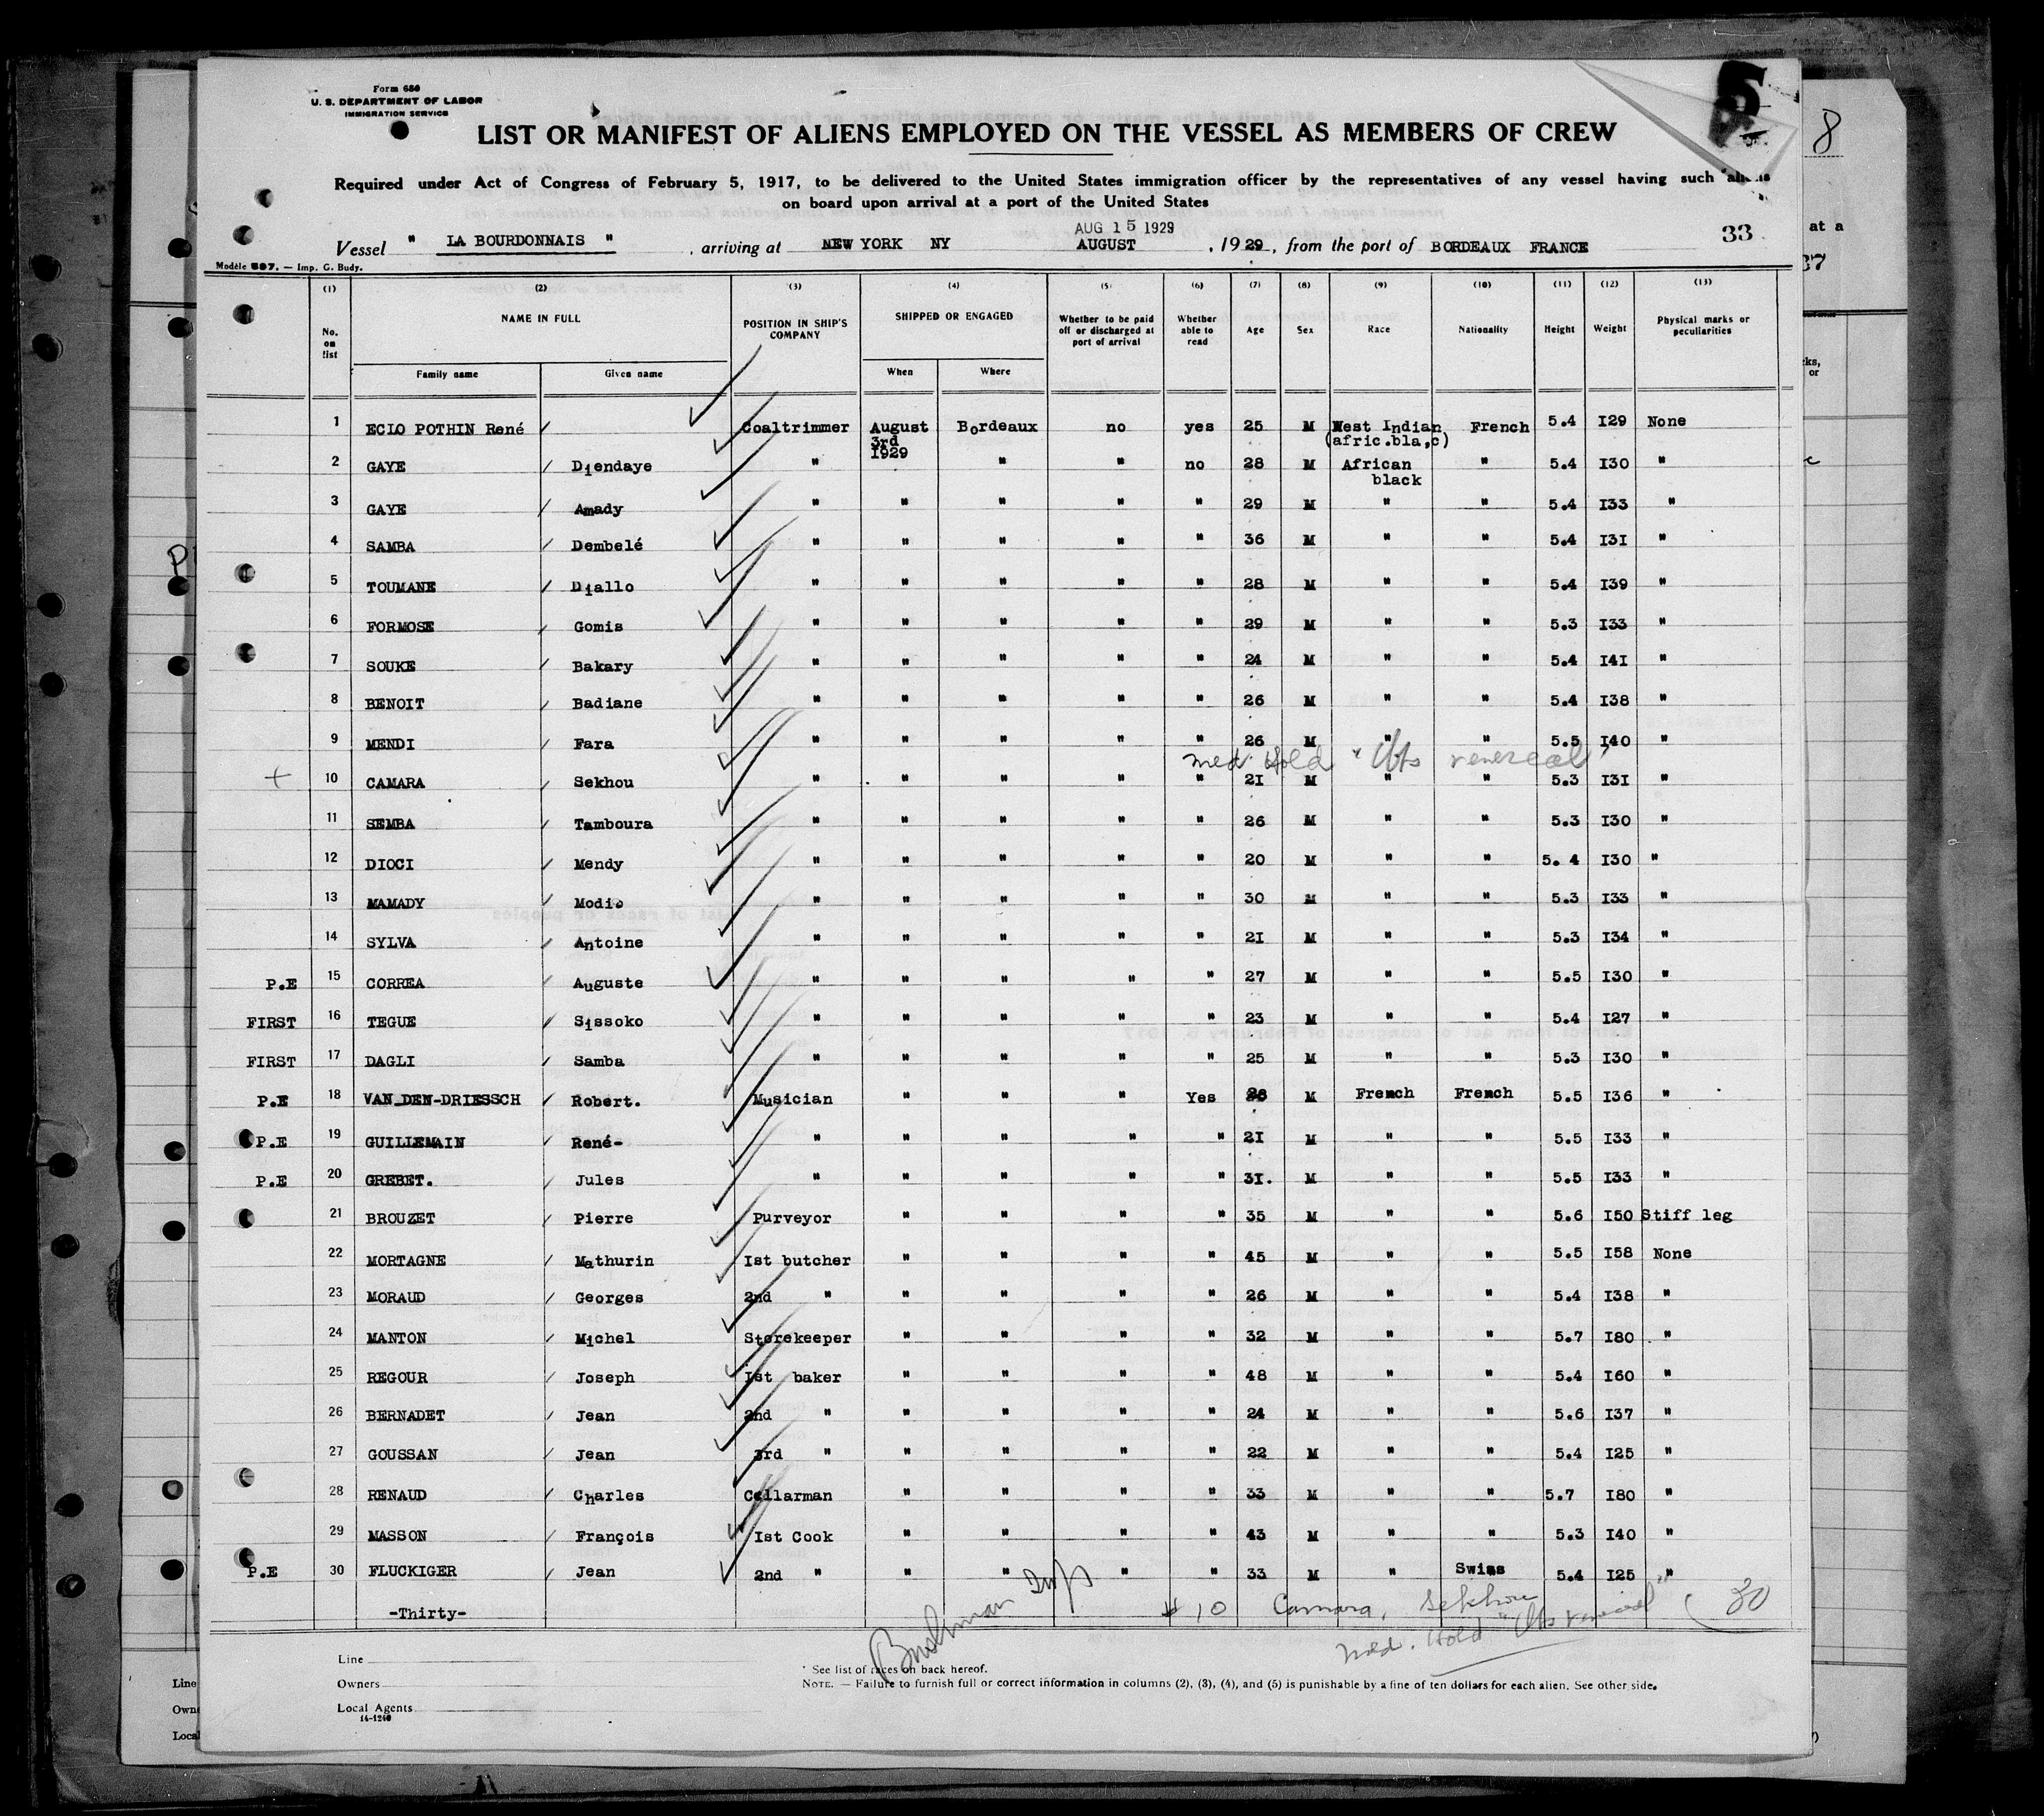 Form 680
U. S. DEPARTMENT OF LABOR
IMMIGRATION SERVICE
5
8
LIST OR MANIFEST OF ALIENS EMPLOYED ON THE VESSEL AS MEMBERS OF CREW
Required under Act of Congress of February 5, 1917, to be delivered to the United States immigration officer by the representatives of any vessel having such aliens
on board upon arrival at a port of the United States
AUG 15 1929
33
at a
Vessel " LA BOURDONNAIS " , arriving at NEW YORK NY AUGUST , 1929, from the port of BORDEAUX FRANCE
37
Modèle 597. — Imp. G. Budy.
(1) (2) (3) (4) (5) (6) (7) (8) (9) (10) (11) (12) (13)
No. on list NAME IN FULL POSITION IN SHIP'S COMPANY SHIPPED OR ENGAGED Whether to be paid off or discharged at port of arrival Whether able to read Age Sex Race Nationality Height Weight Physical marks or peculiarities
Family name Given name When Where
ks,
or
1 ECIO POTHIN René / Coaltrimmer August 3rd 1929 Bordeaux no yes 25 M West Indian (afric.bla,c) French 5.4 I29 None
2 GAYE / Diendaye " " " no 28 M African black " 5.4 I30 "
3 GAYE / Amady " " " " " 29 M " " 5.4 I33 "
4 SAMBA / Dembelé " " " " " 36 M " " 5.4 I31 "
5 TOUMANE / Diallo " " " " " 28 M " " 5.4 I39 "
6 FORMOSE / Gomis " " " " " 29 M " " 5.3 I33 "
7 SOUKE / Bakary " " " " " 24 M " " 5.4 I41 "
8 BENOIT / Badiane " " " " " 26 M " " 5.4 I38 "
9 MENDI / Fara " " " " " 26 M " " 5.5 I40 "
Med Hold venereal
+ 10 CAMARA / Sekhou " " " " " 21 M " " 5.3 I31 "
11 SEMBA / Tamboura " " " " " 26 M " " 5.3 I30 "
12 DIOCI / Mendy " " " " " 20 M " " 5. 4 I30 "
13 MAMADY / Modio " " " " " 30 M " " 5.3 I33 "
14 SYLVA / Antoine " " " " " 2I M " " 5.3 I34 "
P.E 15 CORREA / Auguste " " " " " 27 M " " 5.5 I30 "
FIRST 16 TEGUE / Sissoko " " " " " 23 M " " 5.4 I27 "
FIRST 17 DAGLI / Samba " " " " " 25 M " " 5.3 I30 "
P.E 18 VAN-DEN-DRIESSCH / Robert. Musician " " " Yes M French French 5.5 I36 "
P.E 19 GUILLEMAIN / René- " " " " " 2I M " " 5.5 I33 "
P.E 20 GREBET. / Jules " " " " " 3I. M " " 5.5 I33 "
21 BROUZET / Pierre Purveyor " " " " 35 M " " 5.6 I50 Stiff leg
22 MORTAGNE / Mathurin Ist butcher " " " " 45 M " " 5.5 I58 None
23 MORAUD / Georges 2nd " " " " " 26 M " " 5.4 I38 "
24 MANTON / Michel Storekeeper " " " " 32 M " " 5.7 I80 "
25 REGOUR / Joseph Ist baker " " " " 48 M " " 5.4 I60 "
26 BERNADET / Jean 2nd " " " " " 24 M " " 5.6 I37 "
27 GOUSSAN / Jean 3rd " " " " " 22 M " " 5.4 I25 "
28 RENAUD / Charles Cellarman " " " " 33 M " " 5.7 I80 "
29 MASSON / François Ist Cook " " " " 43 M " " 5.3 I40 "
P.E 30 FLUCKIGER / Jean 2nd " " " " " 33 M " Swiss 5.4 I25 "
-Thirty-
# 10 Camara, Sekhou
Med. Hold venereal
30
Bushman Insp
Line
Owners
Local Agents
14-1240
* See list of races on back hereof.
NOTE. — Failure to furnish full or correct information in columns (2), (3), (4), and (5) is punishable by a fine of ten dollars for each alien. See other side.
Line
Own
Local